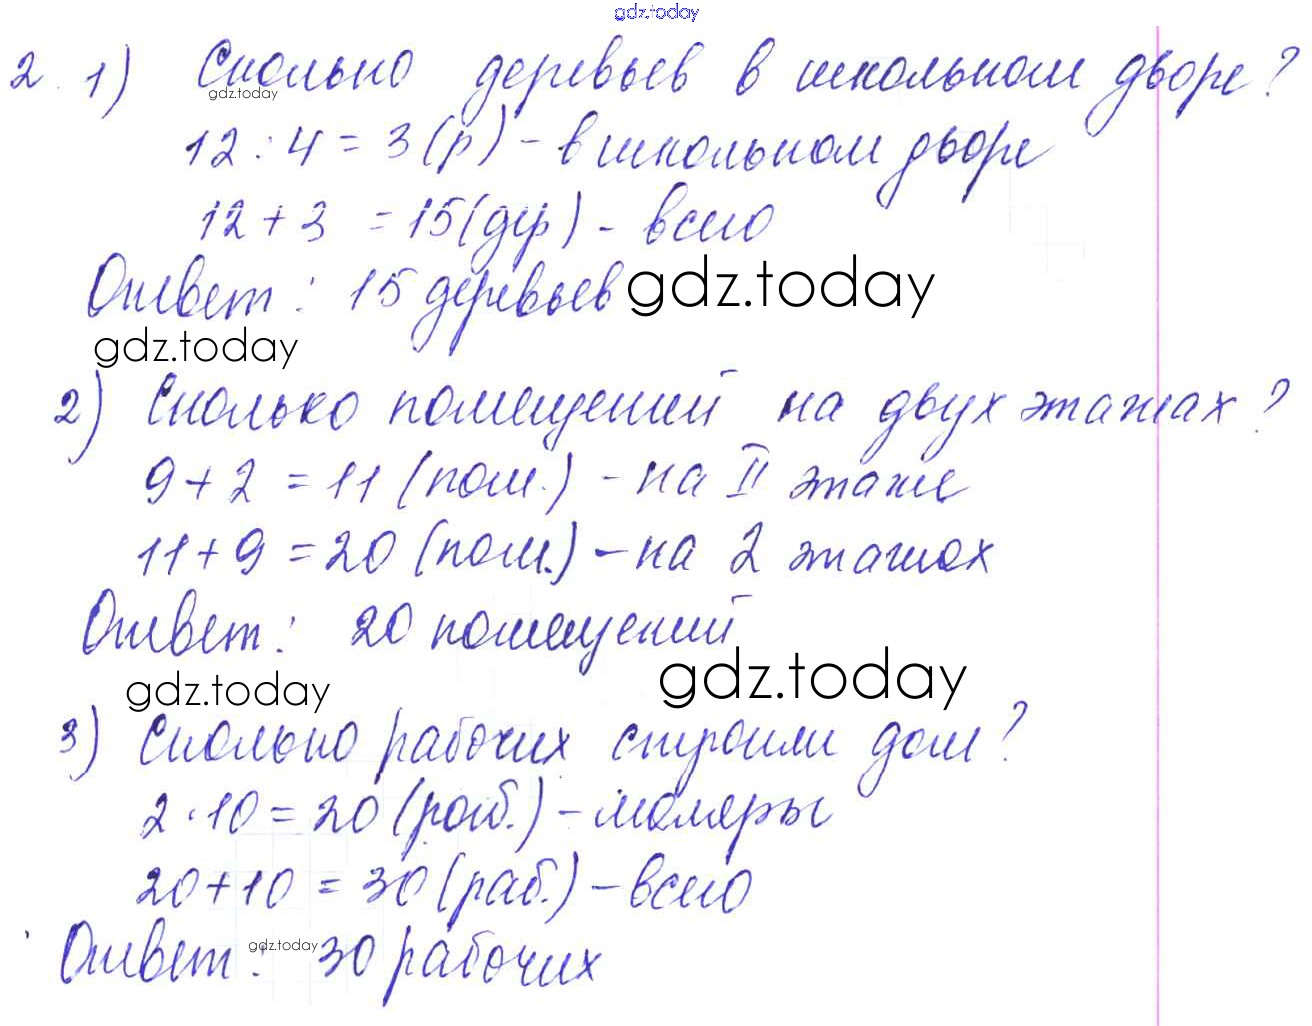 gdz.today
2. 1) Сколько деревьев в школьном дворе?
gdz.today
12 : 4 = 3 (р) - в школьном дворе
12 + 3 = 15 (дер) - всего
Ответ: 15 деревьев
gdz.today
gdz.today
2) Сколько помещений на двух этажах?
9 + 2 = 11 (пом.) - на II этаже
11 + 9 = 20 (пом.) - на 2 этажах
Ответ: 20 помещений
gdz.today
gdz.today
3) Сколько рабочих строили дом?
2 · 10 = 20 (раб.) - маляры
20 + 10 = 30 (раб.) - всего
Ответ: 30 рабочих
gdz.today